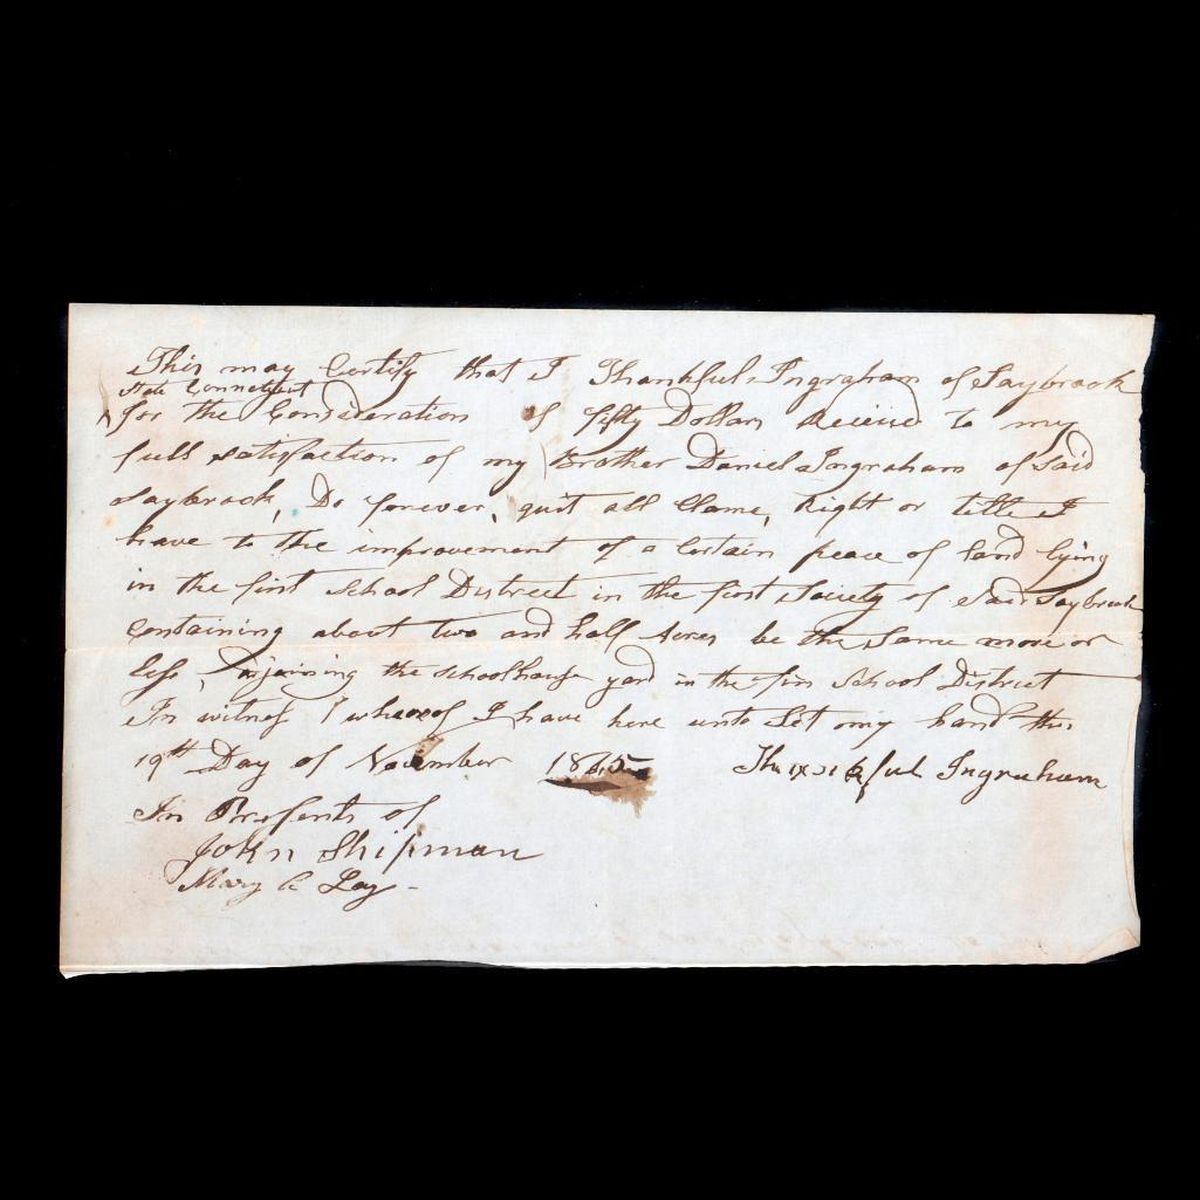 This may Certify that I Thankful Ingraham of Saybrook
State Connecticut
for the Consideration of fifty Dollars Received to my
full satisfaction of my Brother Daniel Ingraham of Said
Saybrook, Do forever, quit all Clame, Right or title I
have to the improvement of a Certain peace of land lying
in the first School District in the first Society of Said Saybrook
Containing about two and half Acres be the Same more or
less, Adjoining the schoolhouse yard in the firs School District
In witness whereof I have here unto Set my hand this
19th Day of November 1845 Thankful Ingraham
In Presents of
John Shipman
Mary A Lay